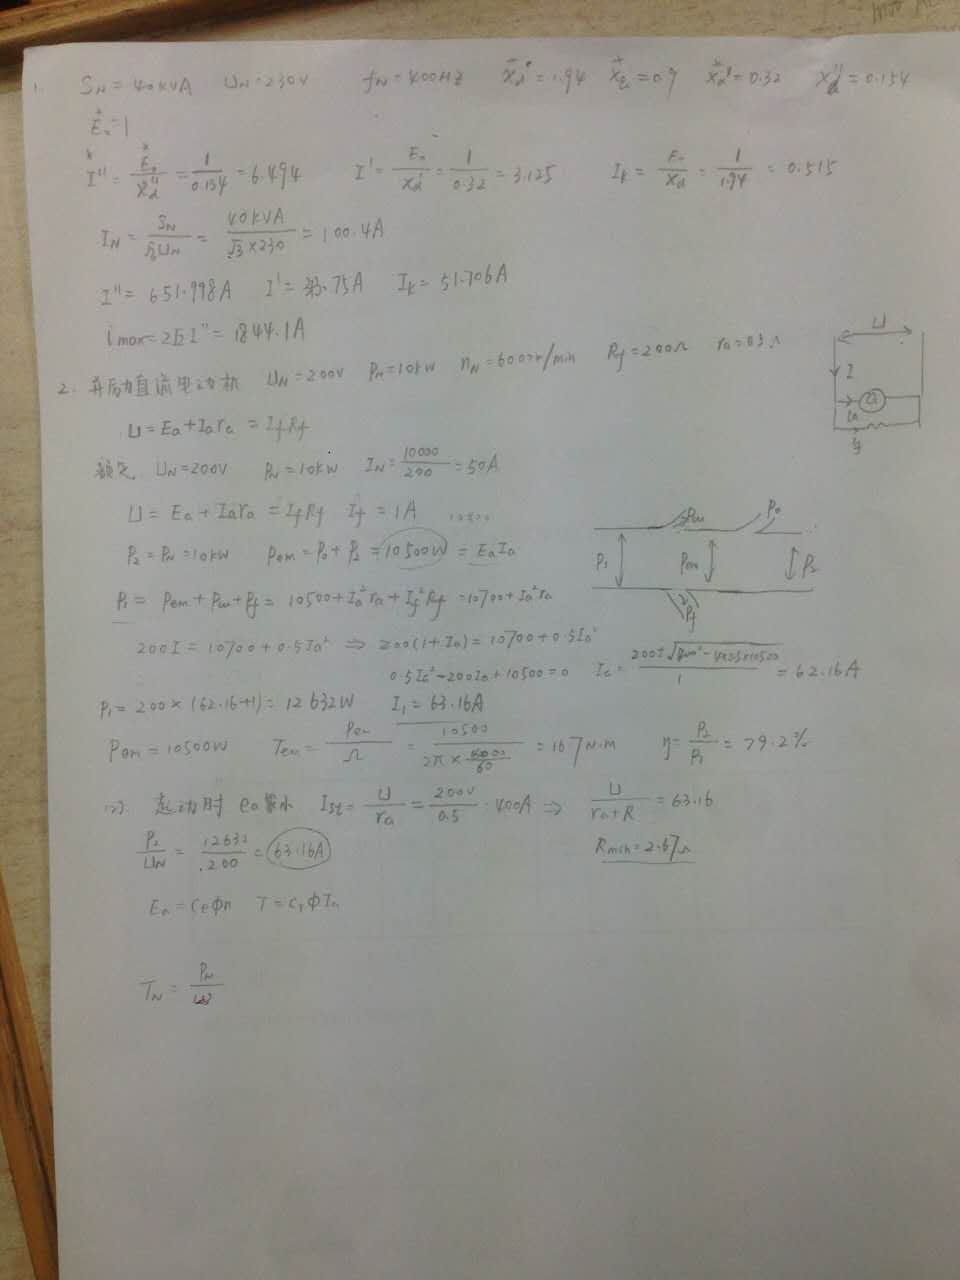 1. S_N = 40kVA U_N = 230V f_N = 400HZ X_d* = 1.94 X_q* = 0.9 X_d'* = 0.32 X_d'' = 0.154
E_0* = 1
I''* = E_0* / X_d''* = 1/0.154 = 6.494 I' = E_0/X_d' = 1/0.32 = 3.125 I_k = E_0/X_d = 1/1.94 = 0.515
I_N = S_N/√3U_N = 40kVA/√3×230 = 100.4A
I'' = 651.998A I' = 313.75A I_k = 51.706A
i_max = 2√2 I'' = 1844.1A
2. 并励直流电动机 U_N = 200V P_N = 10kW n_N = 6000r/min R_f = 200Ω
U
I
Ia
If
U = Ea + Iara = IfRf
额定 U_N = 200V P_N = 10kW I_N = 10000/200 = 50A
U = Ea + Iara = IfRf If = 1A
P2 = P_N = 10kW Pem = P0 + P2 = 10500W = EaIa
P1 Pcu Pem P0 P2 Pf
P1 = Pem + Pcu + Pf = 10500 + Ia²ra + If²Rf = 10700 + Ia²ra
200I = 10700 + 0.5Ia² ⇒ 200(1+Ia) = 10700 + 0.5Ia²
0.5Ia² - 200Ia + 10500 = 0 Ia = 200±√200²-4×0.5×10500 / 1 = 62.16A
P1 = 200 × (62.16+1) = 12632W I1 = 63.16A
Pem = 10500W Tem = Pem/Ω = 10500 / 2π×6000/60 = 16.7N·m η = P2/P1 = 79.2%
(2) 起动时 ea最小 Ist = U/ra = 200V/0.5 = 400A ⇒ U/ra+R = 63.16
/U_N = 12632/200 = 63.16A Rmin = 2.67Ω
Ea = CeΦn T = C_TΦIa
T_N = P_N/ω